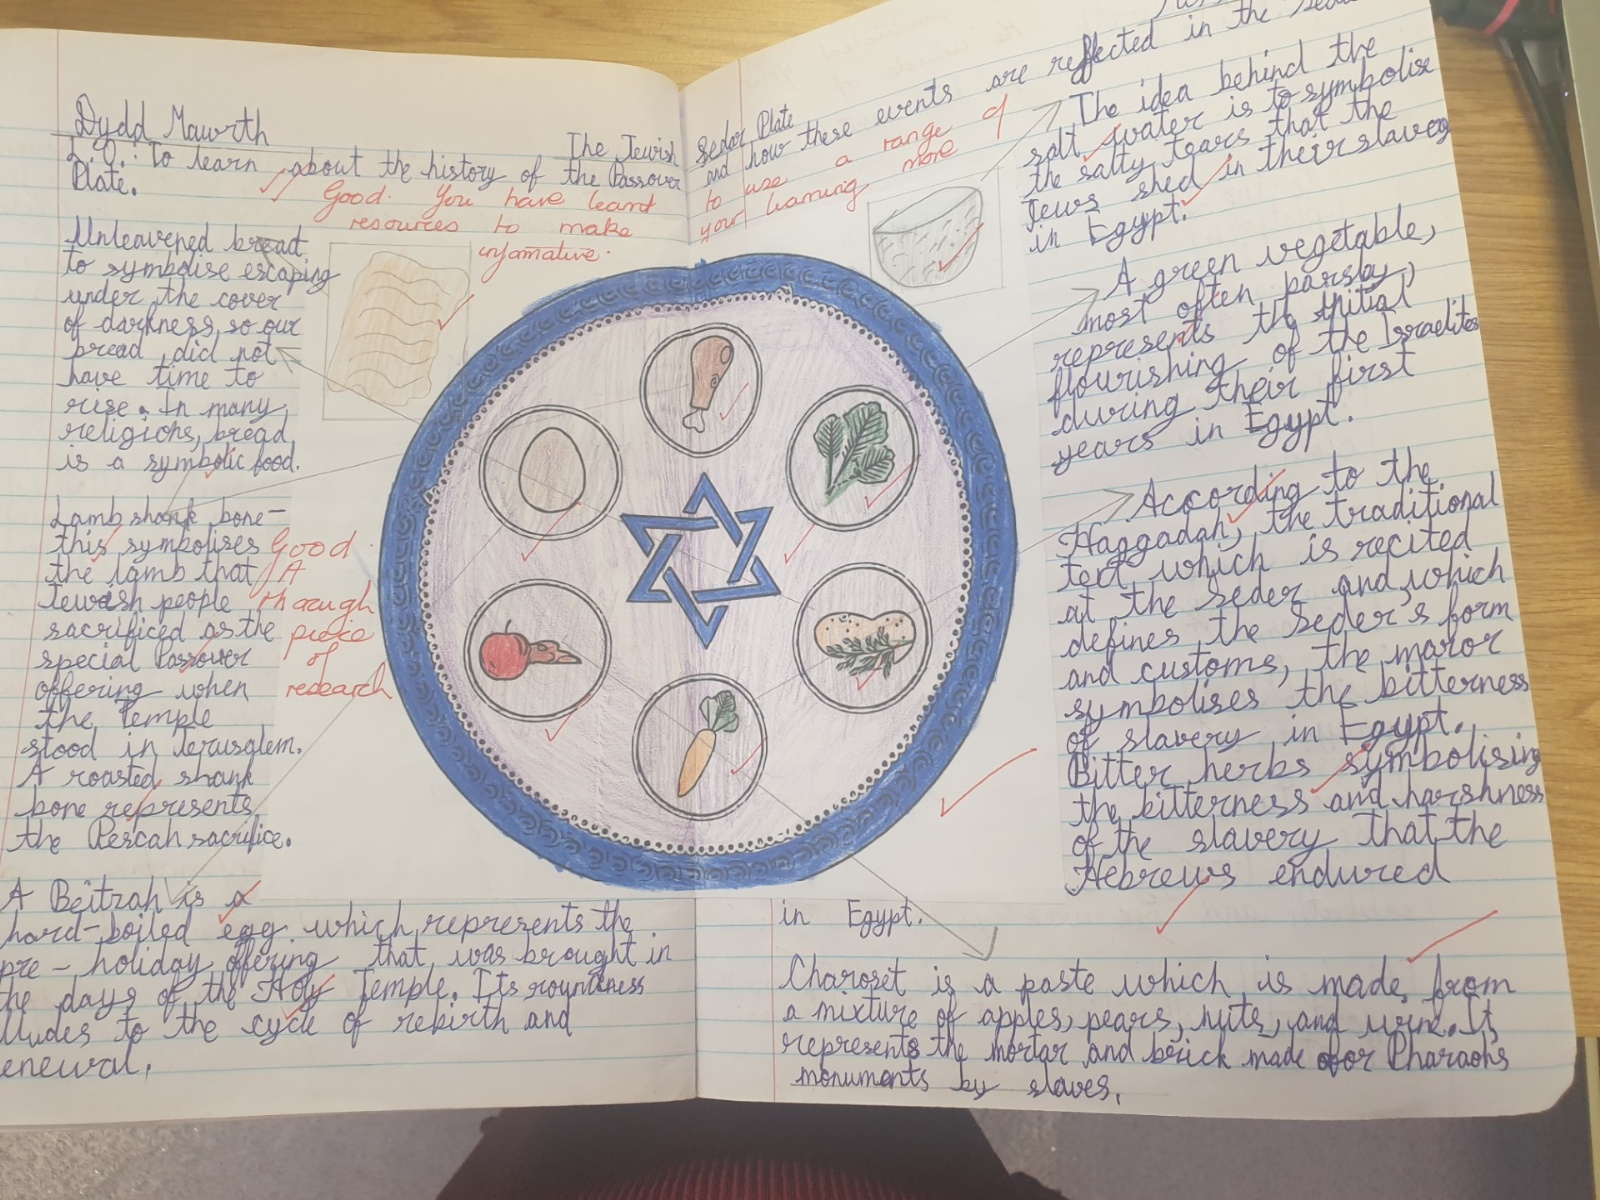 Dydd Mawrth
The Jewish Sedar Plate
L.O.: To learn about the history of the Passover and how these events are reflected in the
Plate.
Good. You have learnt to use a range of
resources to make your learning more
infomative.
Unleavened bread
to symbolise escaping
under the cover
of darkness, so our
bread did not
have time to
rise. In many
religions, bread
is a symbolic food.
Lamb shank bone-
this symbolises
the lamb that
Jewish people
sacrificed as the
special Passover
offering when
the Temple
stood in Jerusalem.
A roasted shank
bone represents
the Pescah sacrifice.
Good.
A
thorough
piece
of
research
A Beitzah is a
hard-boiled egg which represents the
pre-holiday offering that was brought in
the days of the Holy Temple. Its roundness
lludes to the cycle of rebirth and
enewal.
The idea behind the
salt water is to symbolise
the salty tears that the
Jews shed in their slavery
in Egypt.
A green vegetable,
most often parsley,
represents the initial
flourishing of the Israelites
during their first
years in Egypt.
According to the
Haggadah, the traditional
text which is recited
at the seder and which
defines the Seder's form
and customs, the maror
symbolises the bitterness
of slavery in Egypt.
Bitter herbs symbolising
the bitterness and harshness
of the slavery that the
Hebrews endured
in Egypt.
Charoset is a paste which is made from
a mixture of apples, pears, nuts, and wine. It
represents the mortar and brick made for Pharaohs
monuments by slaves.